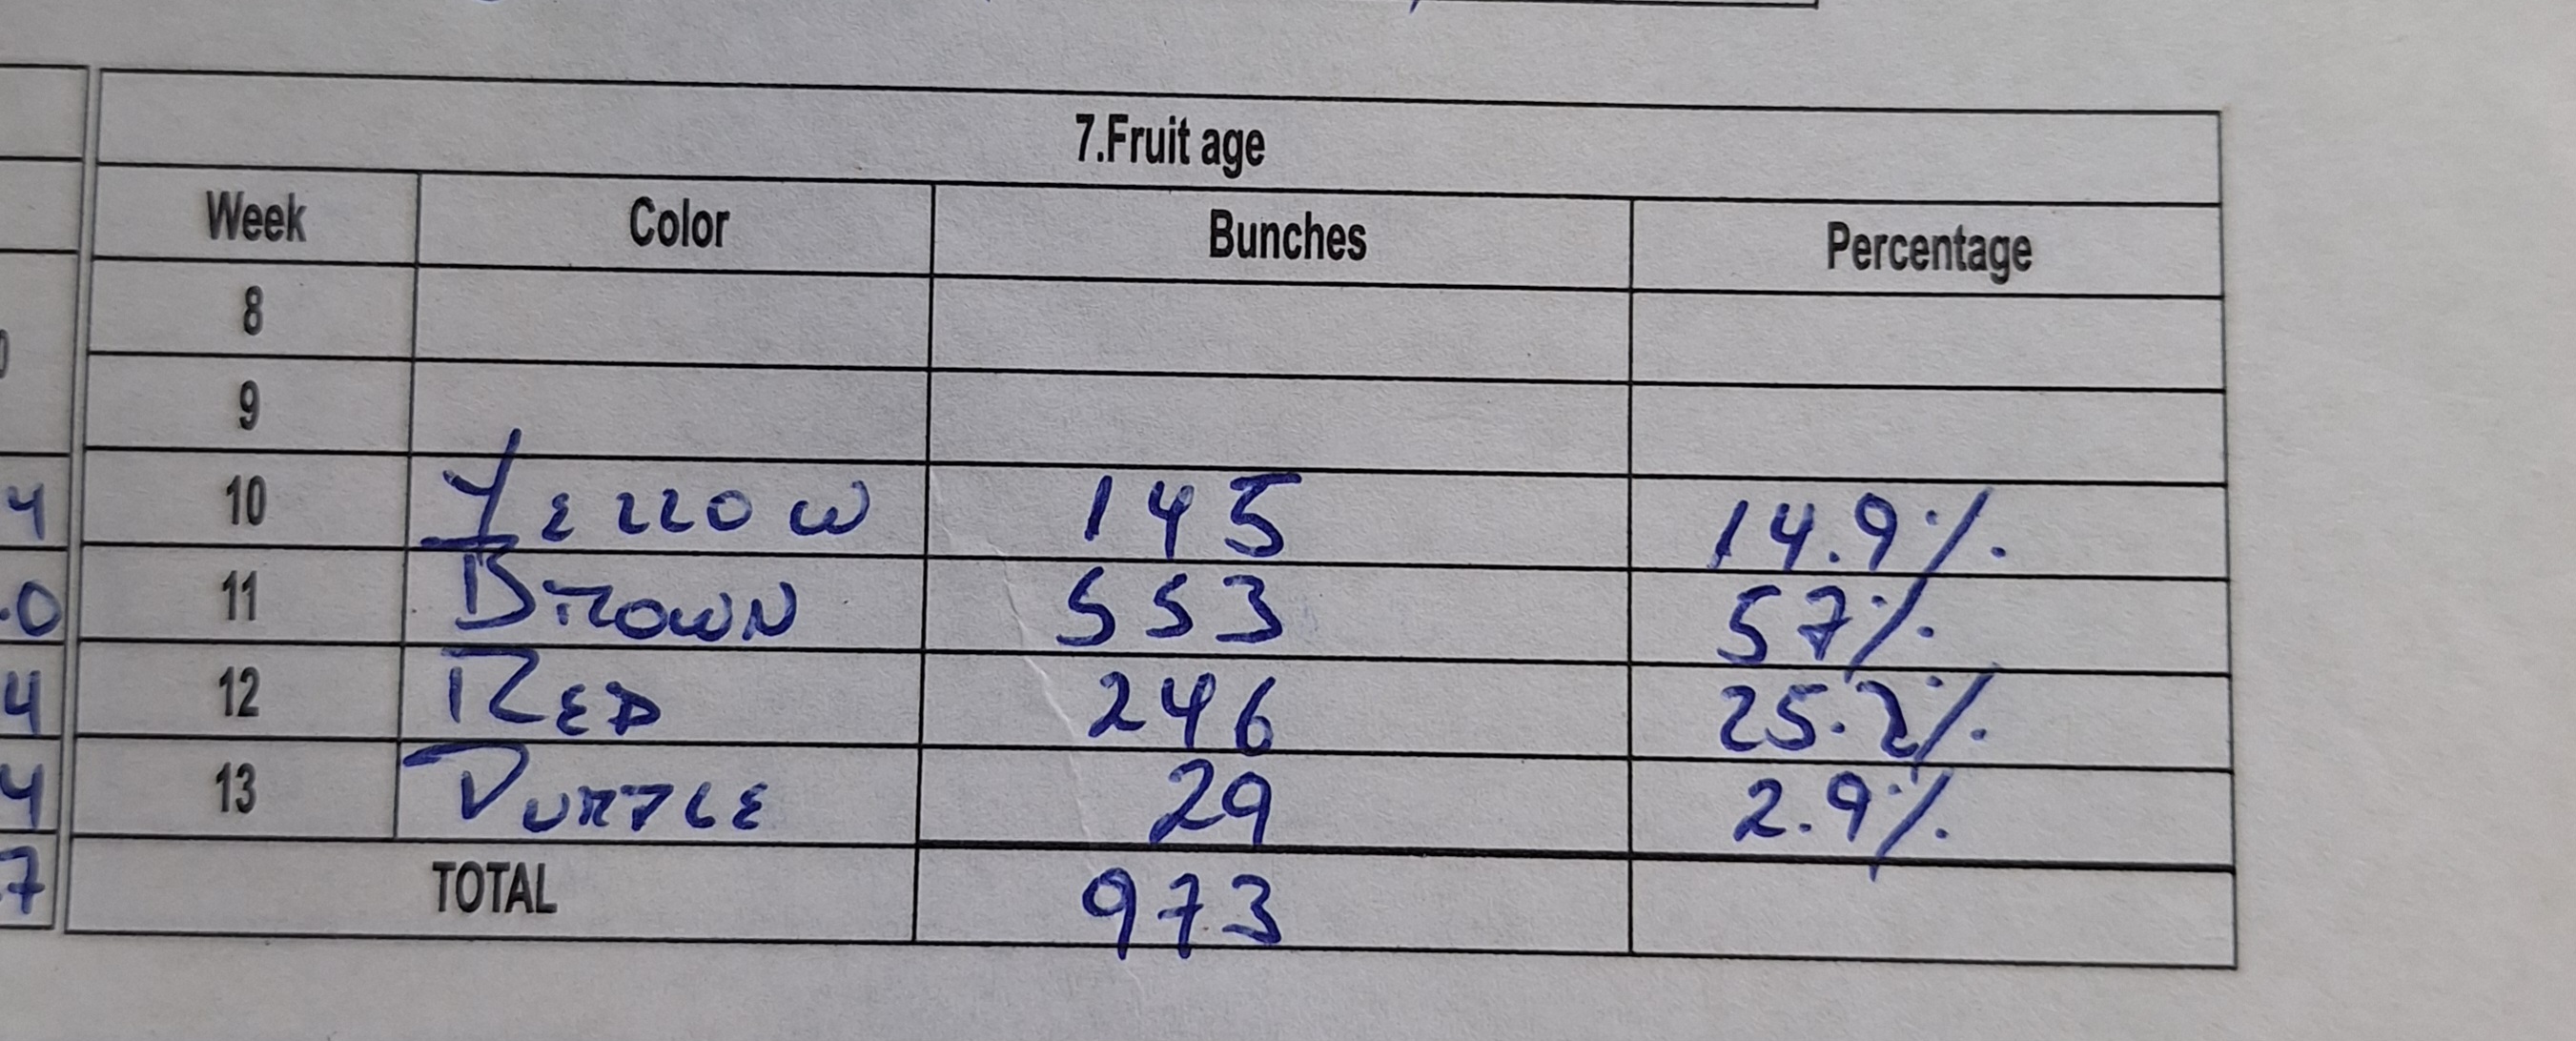 7.Fruit age
Week Color Bunches Percentage
8
9
4 10 Yellow 145 14.9%
.0 11 Brown 553 57%
4 12 Red 246 25.2%
4 13 Purple 29 2.9%
7 TOTAL 973